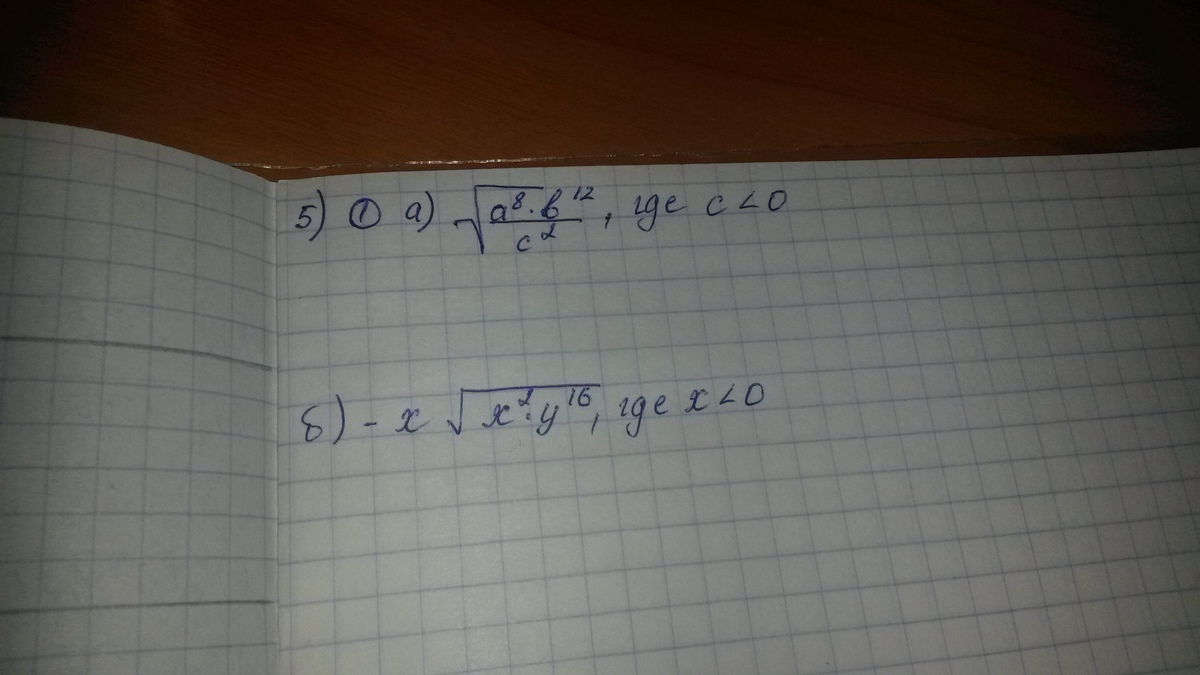 5) ① а) √(a⁸·b¹² / c²), где c<0
б) - x √(x²·y¹⁶), где x<0